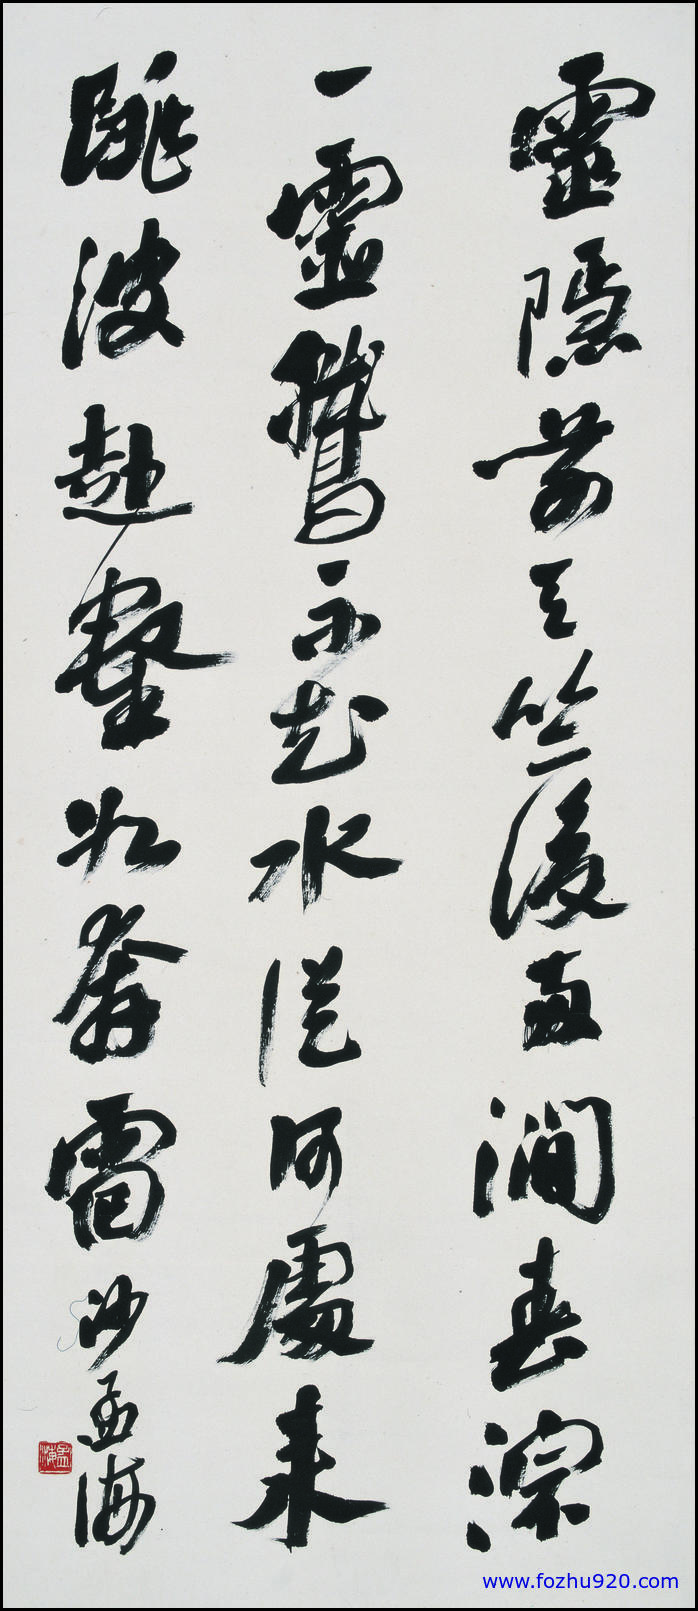 靈隱前天竺後兩澗春淙
一靈鷲不知水從何處來
跳波赴壑如奔雷 沙孟海
孟海
www.fozhu920.com